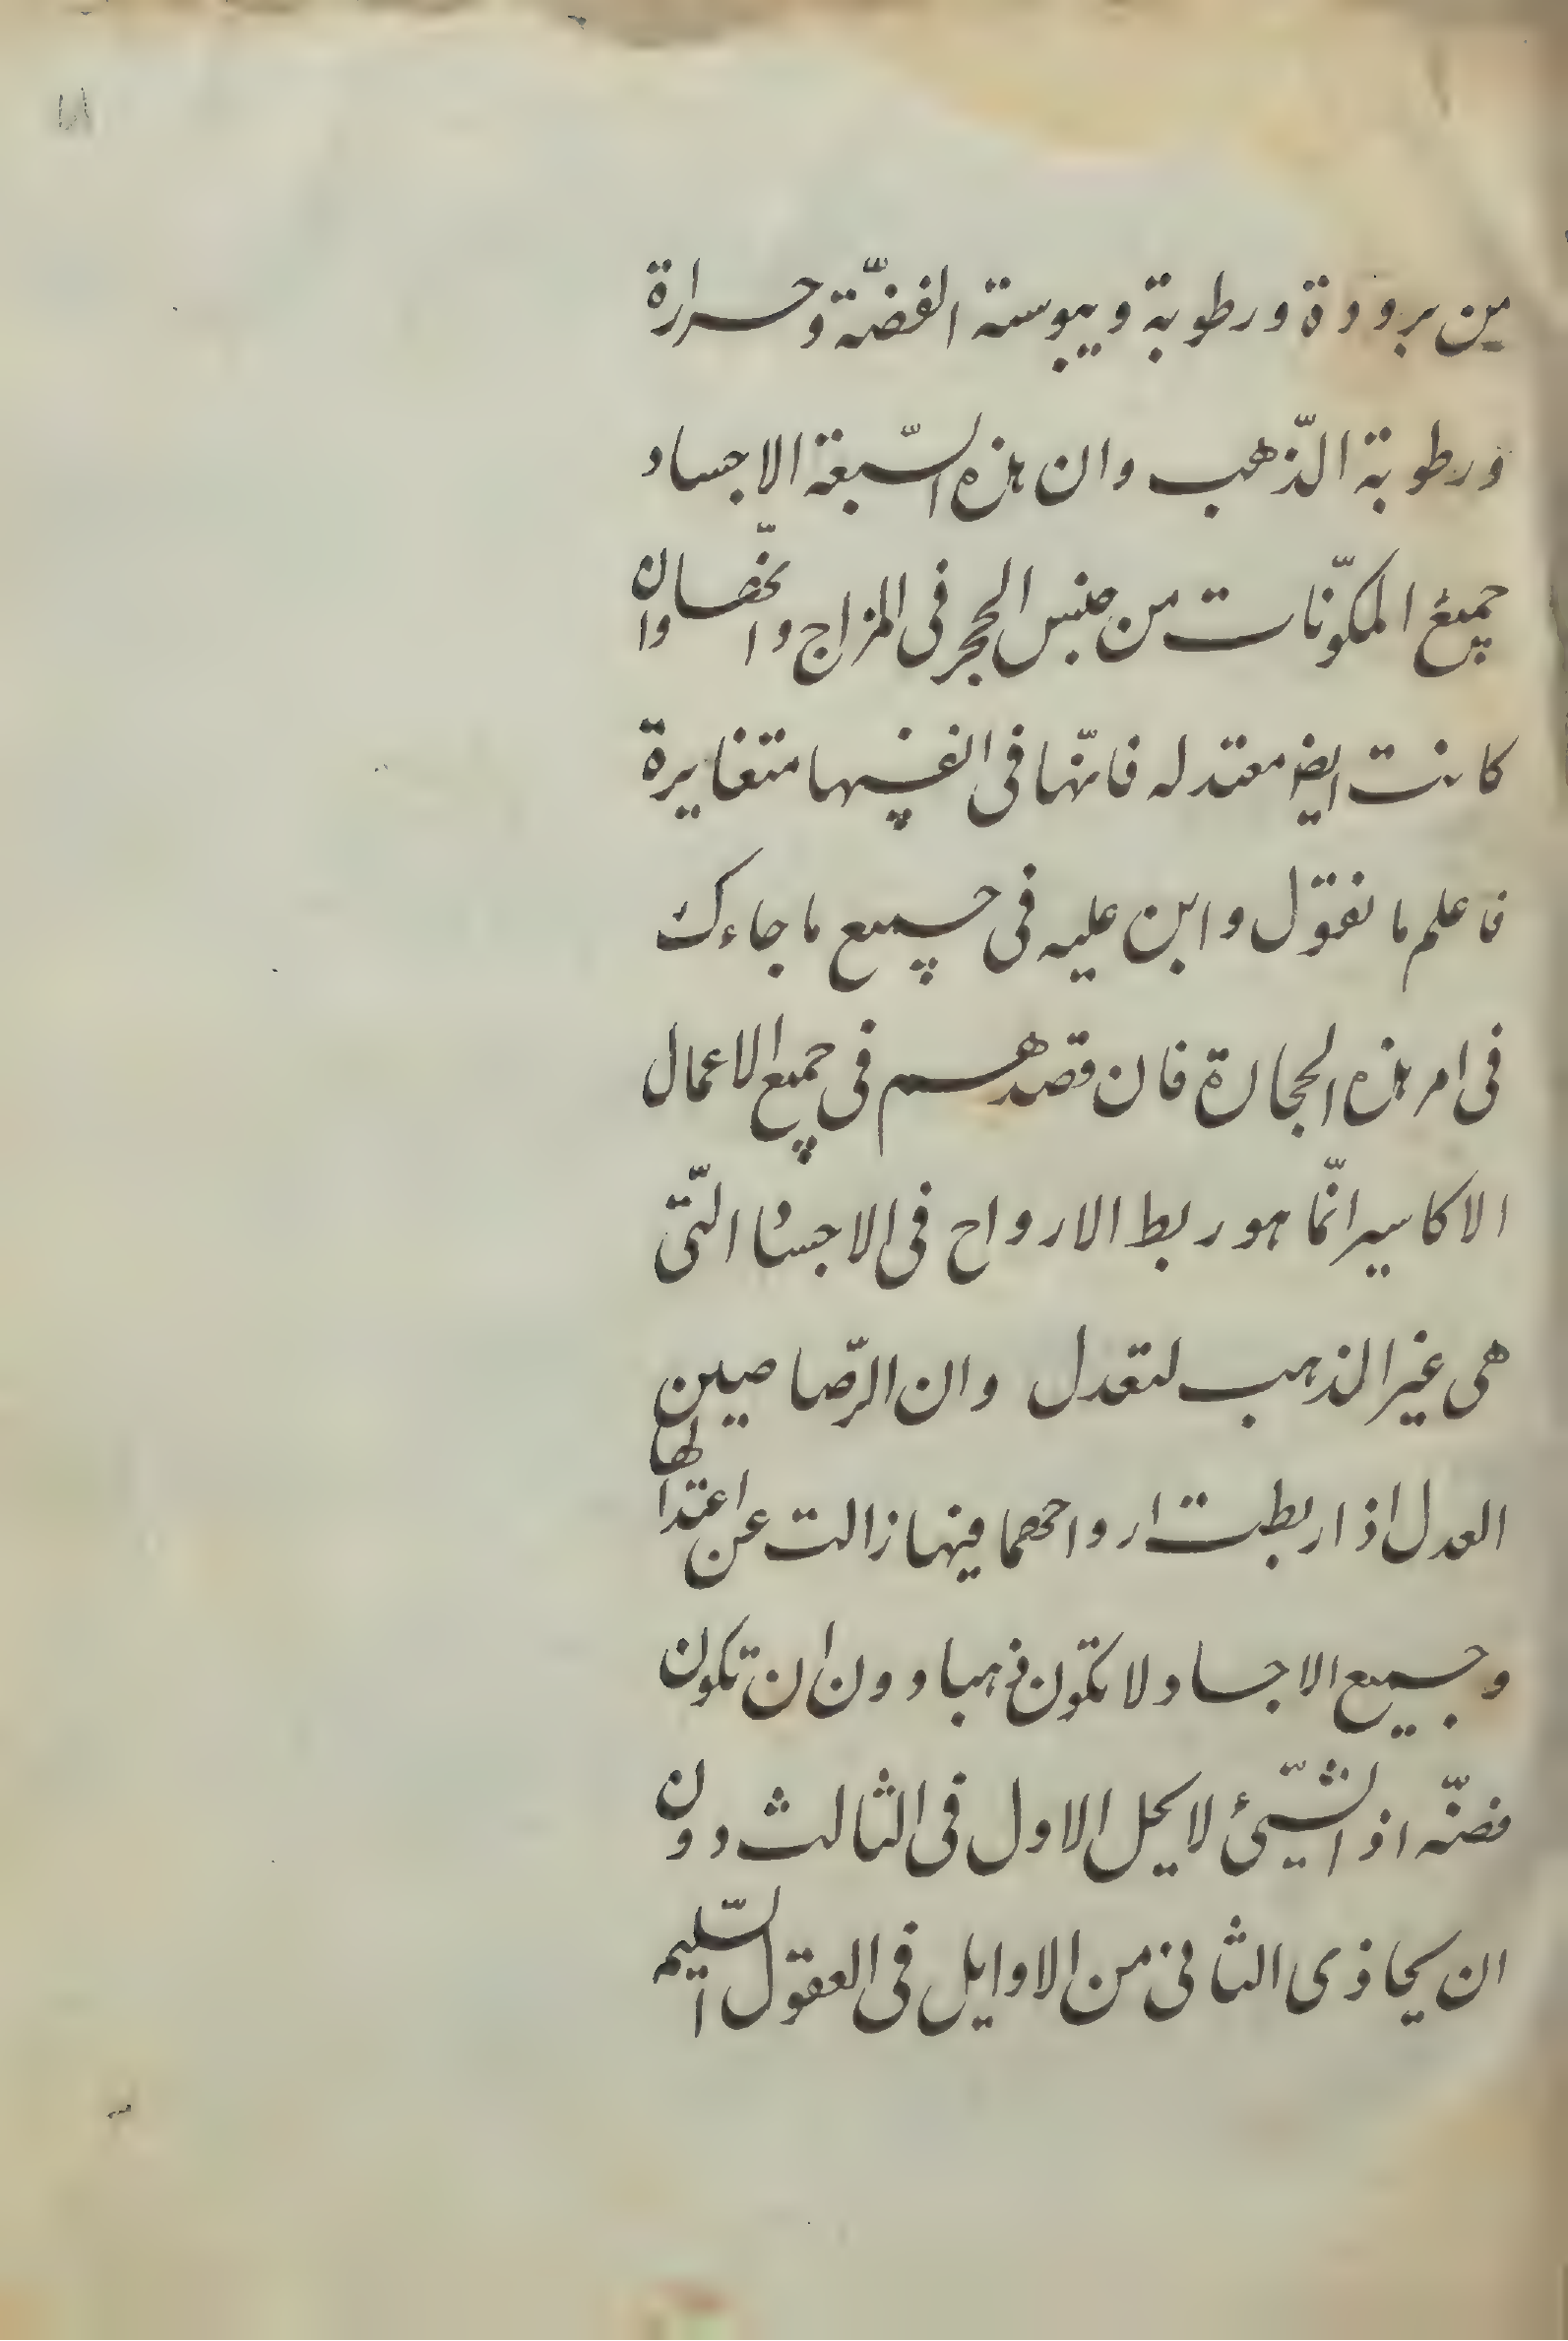 من برودة ورطوبة ويبوسة الفضّة وحرارة
ورطوبة الذّهب وان هذه السّبعة الاجساد
جميع المكوّنات من جنس الحجر فى المزاج وا وان
كانت ايض معتدله فانّها فى انفسها متغايرة
فاعلم ما نقول وابن عليه فى جميع ما جاءك
فى امر هذه الحجارة فان قصدهم فى جميع الاعمال
الاكاسير انّما هو ربط الارواح فى الاجساد الّتى
هى غير الذهب لتعدل وان الرّصاصين
العدل اذا ربطت ارواحهما فيها زالت عن اعتدالها
وجميع الاجساد لا تكون ذهبا دون ان تكون
فضّه اذ الشّيئ لا يحل الاول فى الثالث دون
ان يحاذى الثانى من الاوايل فى العقول السّليمه